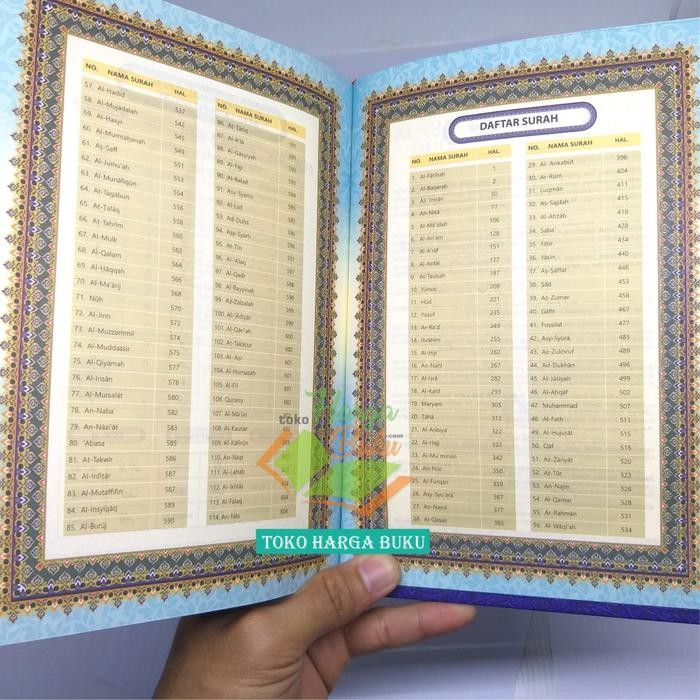 DAFTAR SURAH
NO. NAMA SURAH HAL.
1 Al-Fātiḥah 1
2 Al-Baqarah 2
3 Āli 'Imrān 50
4 An-Nisā' 77
5 Al-Mā'idah 106
6 Al-An'ām 128
7 Al-A'rāf 151
8 Al-Anfāl 177
9 At-Taubah 187
10 Yūnus 208
11 Hūd 221
12 Yūsuf 235
13 Ar-Ra'd 249
14 Ibrāhīm 255
15 Al-Ḥijr 262
16 An-Naḥl 267
17 Al-Isrā' 282
18 Al-Kahf 293
19 Maryam 305
20 Ṭāhā 312
21 Al-Anbiyā' 322
22 Al-Ḥajj 332
23 Al-Mu'minūn 342
24 An-Nūr 350
25 Al-Furqān 359
26 Asy-Syu'arā' 367
27 An-Naml 377
28 Al-Qaṣaṣ 385
NO. NAMA SURAH HAL.
29 Al-'Ankabūt 396
30 Ar-Rūm 404
31 Luqmān 411
32 As-Sajdah 415
33 Al-Aḥzāb 418
34 Saba' 428
35 Fāṭir 434
36 Yāsīn 440
37 Aṣ-Ṣāffāt 446
38 Ṣād 453
39 Az-Zumar 458
40 Gāfir 467
41 Fuṣṣilat 477
42 Asy-Syūrā 483
43 Az-Zukhruf 489
44 Ad-Dukhān 496
45 Al-Jāṡiyah 499
46 Al-Aḥqāf 502
47 Muḥammad 507
48 Al-Fatḥ 511
49 Al-Ḥujurāt 515
50 Qāf 518
51 Aż-Żāriyāt 520
52 Aṭ-Ṭūr 523
53 An-Najm 526
54 Al-Qamar 528
55 Ar-Raḥmān 531
56 Al-Wāqi'ah 534
NO. NAMA SURAH HAL.
57. Al-Ḥadīd 537
58. Al-Mujādalah 542
59. Al-Ḥasyr 545
60. Al-Mumtaḥanah 549
61. Aṣ-Ṣaff 551
62. Al-Jumu'ah 553
63. Al-Munāfiqūn 554
64. At-Tagābun 556
65. Aṭ-Ṭalāq 558
66. At-Taḥrīm 560
67. Al-Mulk 562
68. Al-Qalam 564
69. Al-Ḥāqqah 566
70. Al-Ma'ārij 568
71. Nūḥ 570
72. Al-Jinn 572
73. Al-Muzzammil 574
74. Al-Muddaṡṡir 575
75. Al-Qiyāmah 577
76. Al-Insān 578
77. Al-Mursalāt 580
78. An-Naba' 582
79. An-Nāzi'āt 583
80. 'Abasa 585
81. At-Takwīr 586
82. Al-Infiṭār 587
83. Al-Muṭaffifīn 587
84. Al-Insyiqāq 589
85. Al-Burūj 590
NO. NAMA SURAH HAL.
86. Aṭ-Ṭāriq 591
87. Al-A'lā 591
88. Al-Gāsyiyah 592
89. Al-Fajr 593
90. Al-Balad 594
91. Asy-Syams 595
92. Al-Lail 595
93. Aḍ-Ḍuḥā 596
94. Asy-Syarḥ 596
95. At-Tīn 597
96. Al-'Alaq 597
97. Al-Qadr 598
98. Al-Bayyinah 598
99. Az-Zalzalah 599
100. Al-'Ādiyāt 599
101. Al-Qāri'ah 600
102. At-Takāṡur 600
103. Al-'Aṣr 601
104. Al-Humazah 601
105. Al-Fīl
106. Quraisy
107. Al-Mā'ūn
108. Al-Kauṡar
109. Al-Kāfirūn
110. An-Naṣr
111. Al-Lahab
112. Al-Ikhlāṣ
113. Al-Falaq 604
114. An-Nās 604
toko
Harga
Buku
.com
TOKO HARGA BUKU